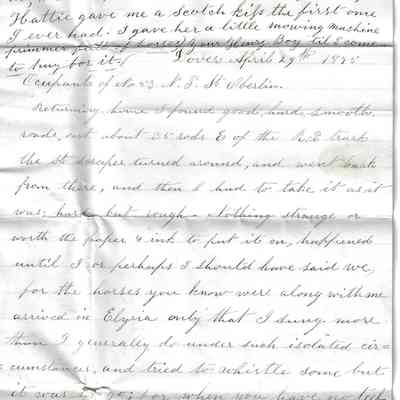 Hattie gave me a Scotch kiss the first one
I ever had. I gave her a little mowing machine
Boy til I come
to buy for it
Dover April 29th 1885
Occupants of No 23 N. P. St Oberlin.
Returning home I found good, hard, smooth
roads, out about 35 rods E of the R.R track
the St scraper turned around, and went back
from there, and then I had to take it as it
was; hard but rough. Nothing strange or
worth the paper & ink to put it on, happened
until I or perhaps I should have said we,
for the horses you know were along with me
arrived in Elyria only that I sung more
than I generally do under such isolated cir=
cumstances, and tried to whistle some but
it was no go; for when you have no teeth